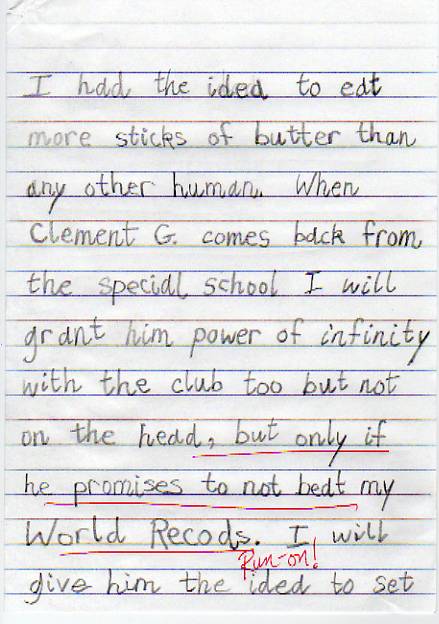 I had the idea to eat
more sticks of butter than
any other human. When
Clement G. comes back from
the special school I will
grant him power of infinity
with the club too but not
on the head, but only if
he promises to not beat my
World Recods. I will
Run-on!
give him the idea to set